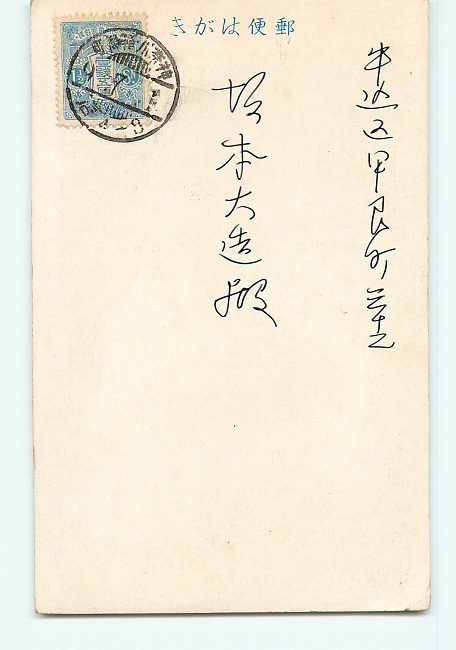 きがは便郵
牛込区甲良町二十二
坂本大造殿